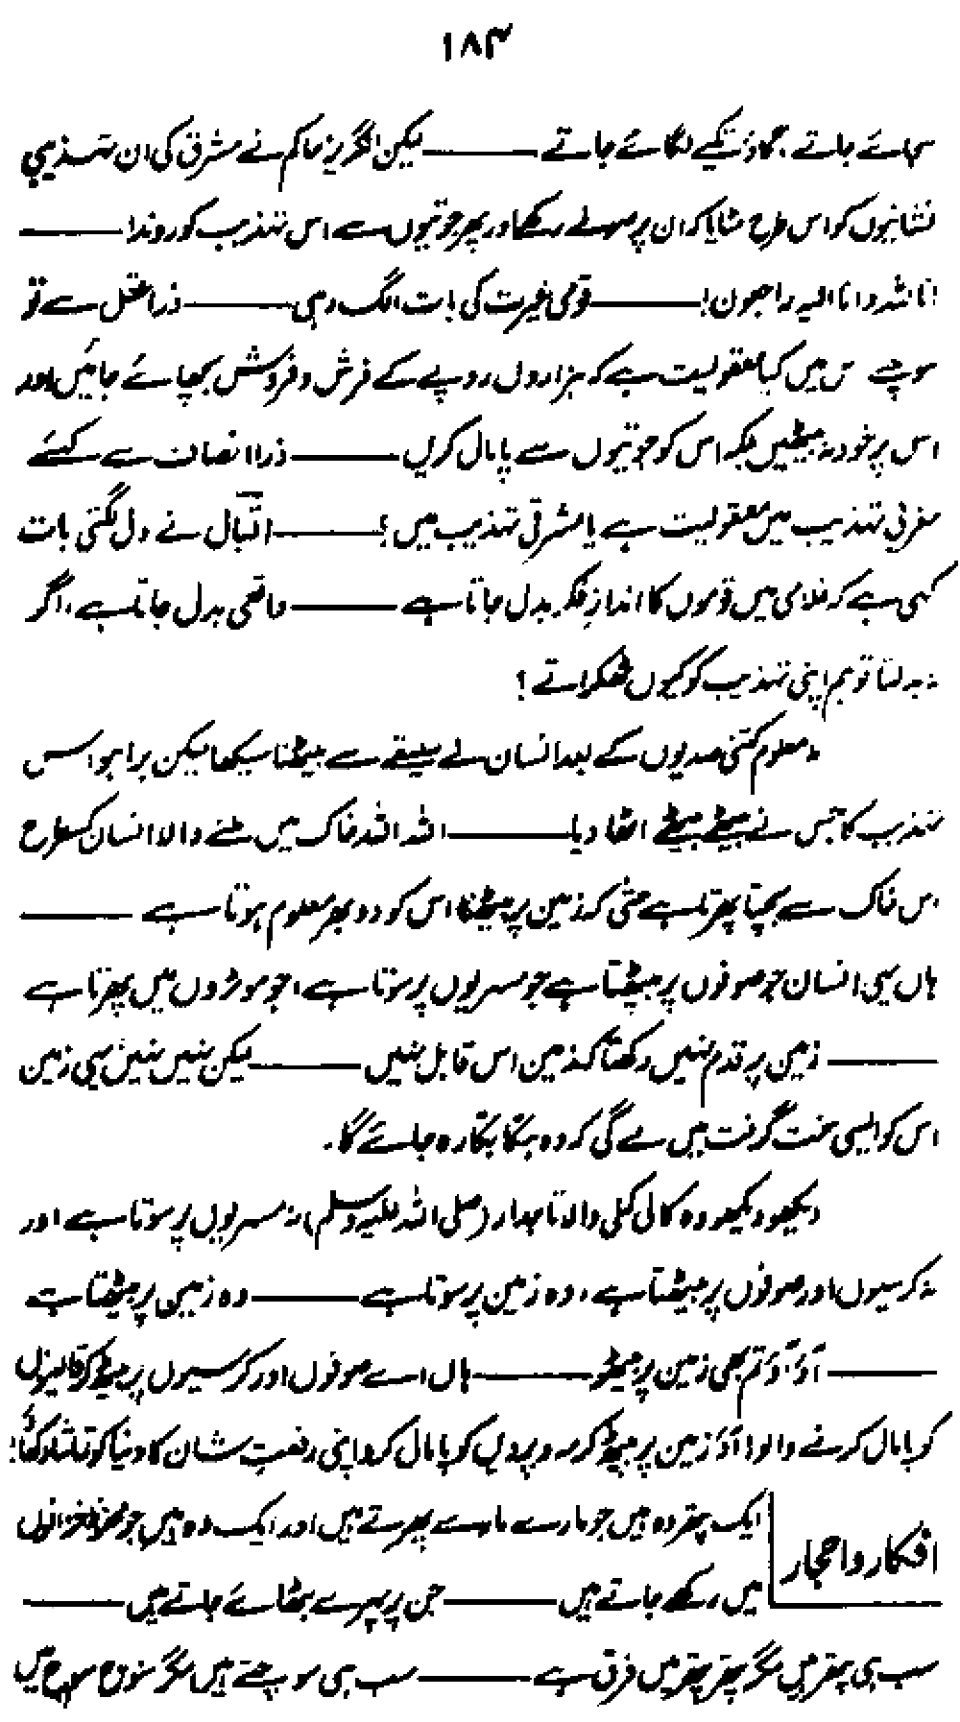 ۱۸۴
سجائے جاتے، گاؤ تکیے لگائے جاتے ——— لیکن انگریز حاکم نے مشرق کی ان تہذیبی
نشانیوں کو اس طرح مٹایا کہ ان پر صوفے رکھے اور پھر جوتیوں سے اس تہذیب کو روندا ———
انا للہ وانا الیہ راجعون! ——— قومی غیرت کی بات الگ رہی ——— ذرا عقل سے تو
سوچیے اس میں کیا معقولیت ہے کہ ہزاروں روپے کے فرش و فروش بچھائے جائیں اور
اس پر خود نہ بیٹھیں بلکہ اس کو جوتیوں سے پامال کریں ——— ذرا انصاف سے کہئے
مغربی تہذیب میں معقولیت ہے یا مشرقی تہذیب میں؟ ——— اقبال نے دل لگتی بات
کہی ہے کہ غلامی میں قوموں کا اندازِ فکر بدل جاتا ہے ——— واقعی بدل جاتا ہے، اگر
نہ بدلتا تو ہم اپنی تہذیب کو کیوں ٹھکراتے؟
نہ معلوم کتنی صدیوں کے بعد انسان نے سلیقے سے بیٹھنا سیکھا لیکن برا ہو اس
تہذیب کا جس نے بیٹھے بیٹھے اٹھا دیا ——— اللہ اللہ خاک میں ملنے والا انسان کس طرح
اس خاک سے بچتا پھرتا ہے حتیٰ کہ زمین پر بیٹھنا اس کو دوبھر معلوم ہوتا ہے ———
ہاں یہی انسان جو صوفوں پر بیٹھتا ہے جو مسہریوں پر سوتا ہے، جو موٹروں میں پھرتا ہے
——— زمین پر قدم نہیں رکھتا کہ زمین اس قابل نہیں ——— لیکن نہیں نہیں یہی زمین
اس کو ایسی سخت گرفت میں لے گی کہ وہ ہکا بکا رہ جائے گا۔
دیکھو دیکھو وہ کالی کملی والا تاجدار (صلی اللہ علیہ وسلم) نہ مسہریوں پر سوتا ہے اور
نہ کرسیوں اور صوفوں پر بیٹھتا ہے، وہ زمین پر سوتا ہے ——— وہ زمین پر بیٹھتا ہے
——— آؤ آؤ تم بھی زمین پر بیٹھو ——— ہاں اے صوفوں اور کرسیوں پر بیٹھ کر قالینوں
کو پامال کرنے والو! آؤ زمین پر بیٹھ کر مہ و پرویں کو پامال کرو اپنی رفعتِ شان کا دنیا کو تماشا دکھاؤ!
افکار و احجار
ایک پتھر وہ ہیں جو مارے مارے پھرتے ہیں اور ایک وہ ہیں جو محفوظ خزانوں
میں رکھے جاتے ہیں ——— جن پر پہرے بٹھائے جاتے ہیں ———
سب ہی پتھر ہیں مگر پتھر پتھر میں فرق ہے ——— سب ہی سوچتے ہیں مگر سوچ سوچ میں